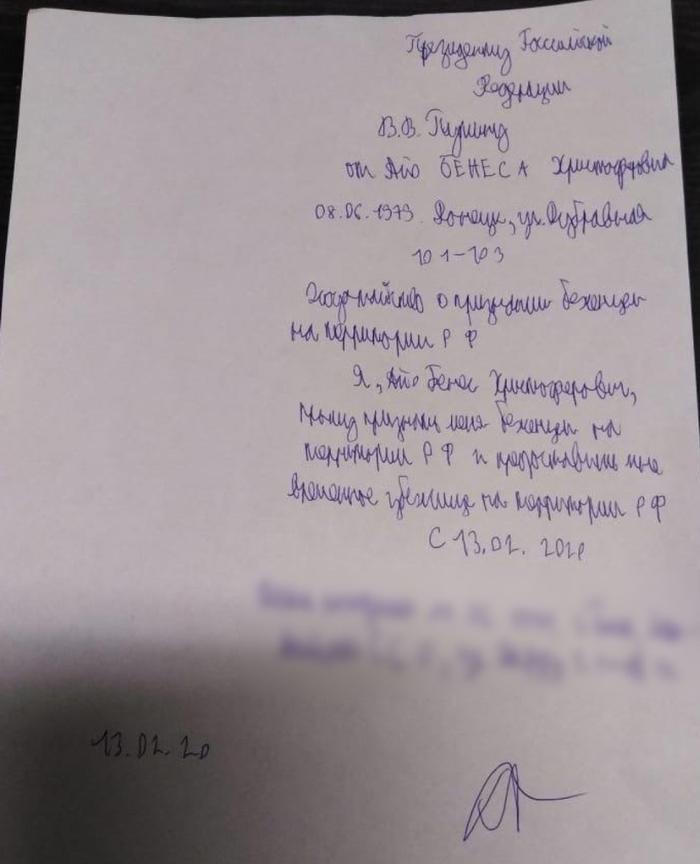 Президенту Российской
Федерации
В.В. Путину
от Айо БЕНЕСА Христофоровича
08.06.1979 Донецк, ул. Дубравная
101-103
Ходатайство о признании беженцем
на территории РФ
Я, Айо Бенес Христофорович,
прошу признать меня беженцем на
территории РФ и предоставить мне
временное убежище на территории РФ
С 13.02.2020
13.02.20